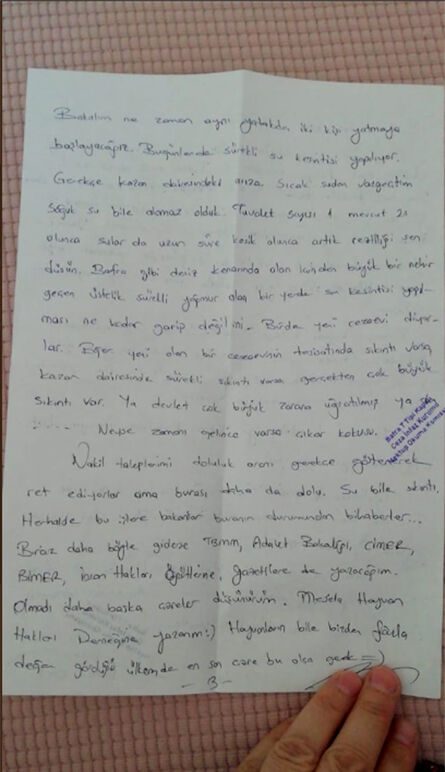 Bakalım ne zaman aynı yatakda iki kişi yatmaya
başlayacağız. Bugünlerde sürekli su kesintisi yapılıyor.
Gerekçe kazan dairesindeki arıza. Sıcak sudan vazgeçtim
soğuk su bile alamaz olduk. Tuvalet sayısı 1 mevcut 21
olunca sular da uzun süre kesik olunca artık rezilliği sen
düşün. Bafra gibi deniz kenarında olan içinden büyük bir nehir
geçen üstelik sürekli yağmur alan bir yerde su kesintisi yapıl-
ması ne kadar garip değil mi. Birde yeni cezaevi diyor-
lar. Eğer yeni olan bir cezaevinin tesisatında sıkıntı varsa,
kazan dairesinde sürekli sıkıntı varsa gerçekten çok büyük
sıkıntı var. Ya devlet çok büyük zarara uğratılmış ya da
...... Neyse zamanı gelince varsa çıkar kokusu.
Nakil taleplerimi doluluk oranı gerekçe göstererek
ret ediyorlar ama burası daha da dolu. Su bile sıkıntı.
Herhalde bu işlere bakanlar buranın durumundan bihaberler...
Biraz daha böyle giderse TBMM, Adalet Bakanlığı, CİMER,
BİMER, İnsan Hakları Örgütlerine, gazetelere de yazacağım.
Olmadı daha başka çareler düşünürüm. Mesela Hayvan
Hakları Derneğine yazarım :) Hayvanların bile bizden fazla
değer gördüğü ülkemde en son çare bu olsa gerek =)
- 3 -
Bafra T Tipi Kapalı
Ceza İnfaz Kurumu
Mektup Okuma Komisyonu